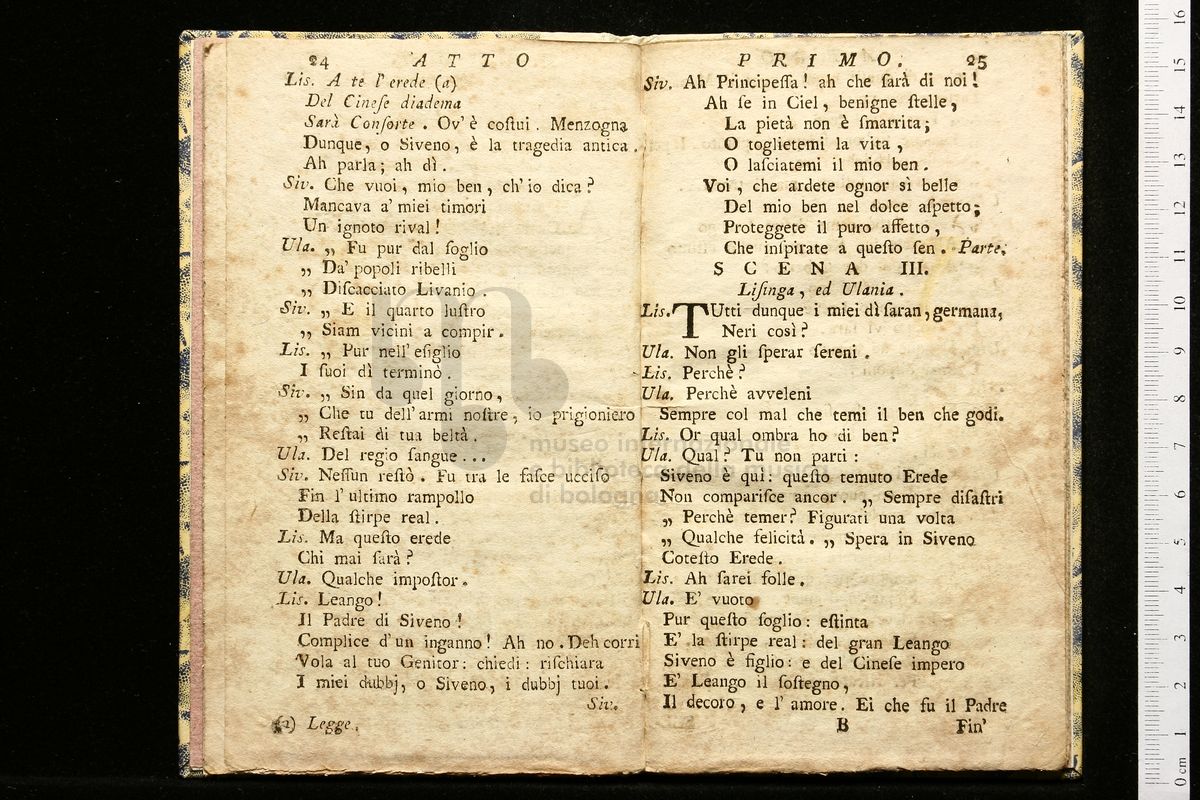 24 A T T O
Lis. A te l'erede (a)
Del Cineſe diadema
Sarà Conſorte . Ov' è coſtui . Menzogna
Dunque, o Siveno, è la tragedia antica.
Ah parla; ah dì .
Siv. Che vuoi, mio ben, ch' io dica?
Mancava a' miei timori
Un ignoto rival!
Ula. „ Fu pur dal ſoglio
„ Da' popoli ribelli
„ Diſcacciato Livanio .
Siv. „ E il quarto luſtro
„ Siam vicini a compir.
Lis. „ Pur nell' eſiglio
I ſuoi dì terminò.
Siv. „ Sin da quel giorno,
„ Che tu dell' armi noſtre, io prigioniero
„ Reſtai di tua beltà .
Ula. Del regio ſangue...
Siv. Neſſun reſtò . Fu tra le faſce ucciſo
Fin l' ultimo rampollo
Della ſtirpe real.
Lis. Ma queſto erede
Chi mai ſarà?
Ula. Qualche impoſtor.
Lis. Leango!
Il Padre di Siveno!
Complice d' un inganno! Ah no. Deh corri
Vola al tuo Genitor: chiedi: riſchiara
I miei dubbj, o Siveno, i dubbj tuoi.
Siv.
(a) Legge.
P R I M O. 25
Siv. Ah Principeſſa! ah che ſarà di noi!
Ah ſe in Ciel, benigne ſtelle,
La pietà non è ſmarrita;
O toglietemi la vita,
O laſciatemi il mio ben.
Voi, che ardete ognor sì belle
Del mio ben nel dolce aſpetto;
Proteggete il puro affetto,
Che inſpirate a queſto ſen. Parte.
S C E N A III.
Liſinga, ed Ulania.
Lis. TUtti dunque i miei dì ſaran, germana,
Neri così?
Ula. Non gli ſperar ſereni.
Lis. Perchè?
Ula. Perchè avveleni
Sempre col mal che temi il ben che godi.
Lis. Or qual ombra ho di ben?
Ula. Qual? Tu non parti:
Siveno è quì: queſto temuto Erede
Non compariſce ancor. „ Sempre diſaſtri
„ Perchè temer? Figurati una volta
„ Qualche felicità. „ Spera in Siveno
Coteſto Erede.
Lis. Ah ſarei folle.
Ula. E' vuoto
Pur queſto ſoglio: eſtinta
E' la ſtirpe real: del gran Leango
Siveno è figlio: e del Cineſe impero
E' Leango il ſoſtegno,
Il decoro, e l' amore. Ei che fu il Padre
B Fin'
museo internazionale
e biblioteca della musica
di bologna
0 cm 1 2 3 4 5 6 7 8 9 10 11 12 13 14 15 16